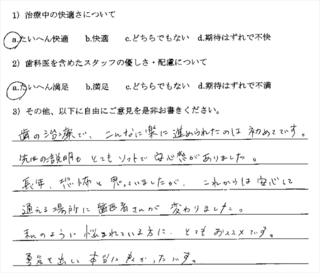 1) 治療中の快適さについて
a.たいへん快適 b.快適 c.どちらでもない d.期待はずれで不快
2) 歯科医を含めたスタッフの優しさ・配慮について
a.たいへん満足 b.満足 c.どちらでもない d.期待はずれで不満
3) その他、以下に自由にご意見を是非お書きください。
歯の治療で、こんなに楽に進められたのは初めてです。
先生の説明もとてもソフトで安心感がありました。
長年、恐怖と思っていましたが、これからは安心して
通える場所に歯医者さんが変わりました。
私のように悩まれている方に、とてもおススメです。
勇気を出して本当に良かったです。